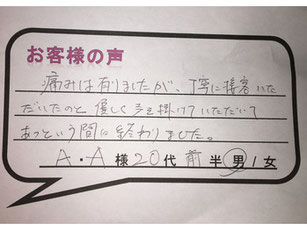 お客様の声
痛みは有りましたが、丁寧に接客いた
だいたのと優しく声を掛けていただいて
あっという間に終わりました。
A・A様20代前半男/女